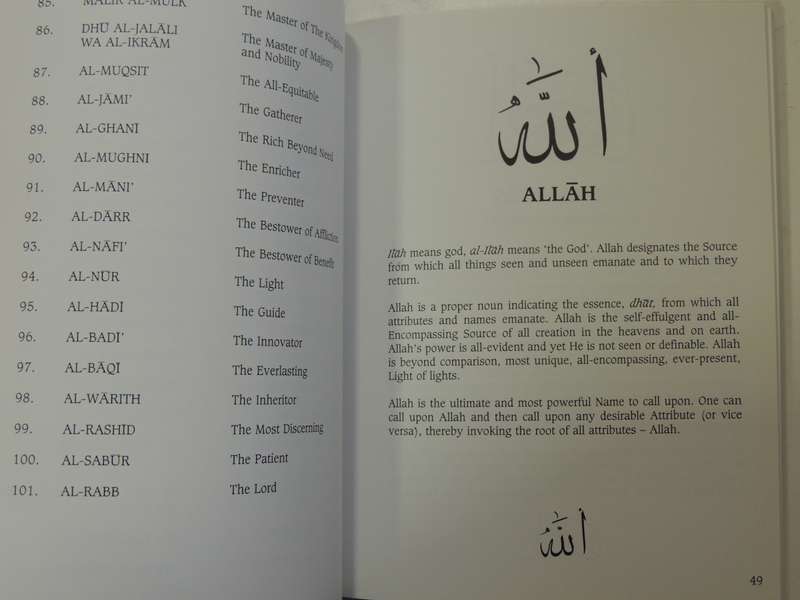 85. MALIK AL-MULK The Master of The Kingdom
86. DHŪ AL-JALĀLI The Master of Majesty
WA AL-IKRĀM and Nobility
87. AL-MUQSIT The All-Equitable
88. AL-JĀMI' The Gatherer
89. AL-GHANI The Rich Beyond Need
90. AL-MUGHNI The Enricher
91. AL-MĀNI' The Preventer
92. AL-DĀRR The Bestower of Affliction
93. AL-NĀFI' The Bestower of Benefit
94. AL-NŪR The Light
95. AL-HĀDI The Guide
96. AL-BADI' The Innovator
97. AL-BĀQI The Everlasting
98. AL-WĀRITH The Inheritor
99. AL-RASHID The Most Discerning
100. AL-SABŪR The Patient
101. AL-RABB The Lord
أللّٰهُ
ALLĀH
Ilāh means god, al-Ilāh means ‘the God’. Allah designates the Source
from which all things seen and unseen emanate and to which they
return.
Allah is a proper noun indicating the essence, dhāt, from which all
attributes and names emanate. Allah is the self-effulgent and all-
Encompassing Source of all creation in the heavens and on earth.
Allah's power is all-evident and yet He is not seen or definable. Allah
is beyond comparison, most unique, all-encompassing, ever-present,
Light of lights.
Allah is the ultimate and most powerful Name to call upon. One can
call upon Allah and then call upon any desirable Attribute (or vice
versa), thereby invoking the root of all attributes – Allah.
أللّٰهُ
49